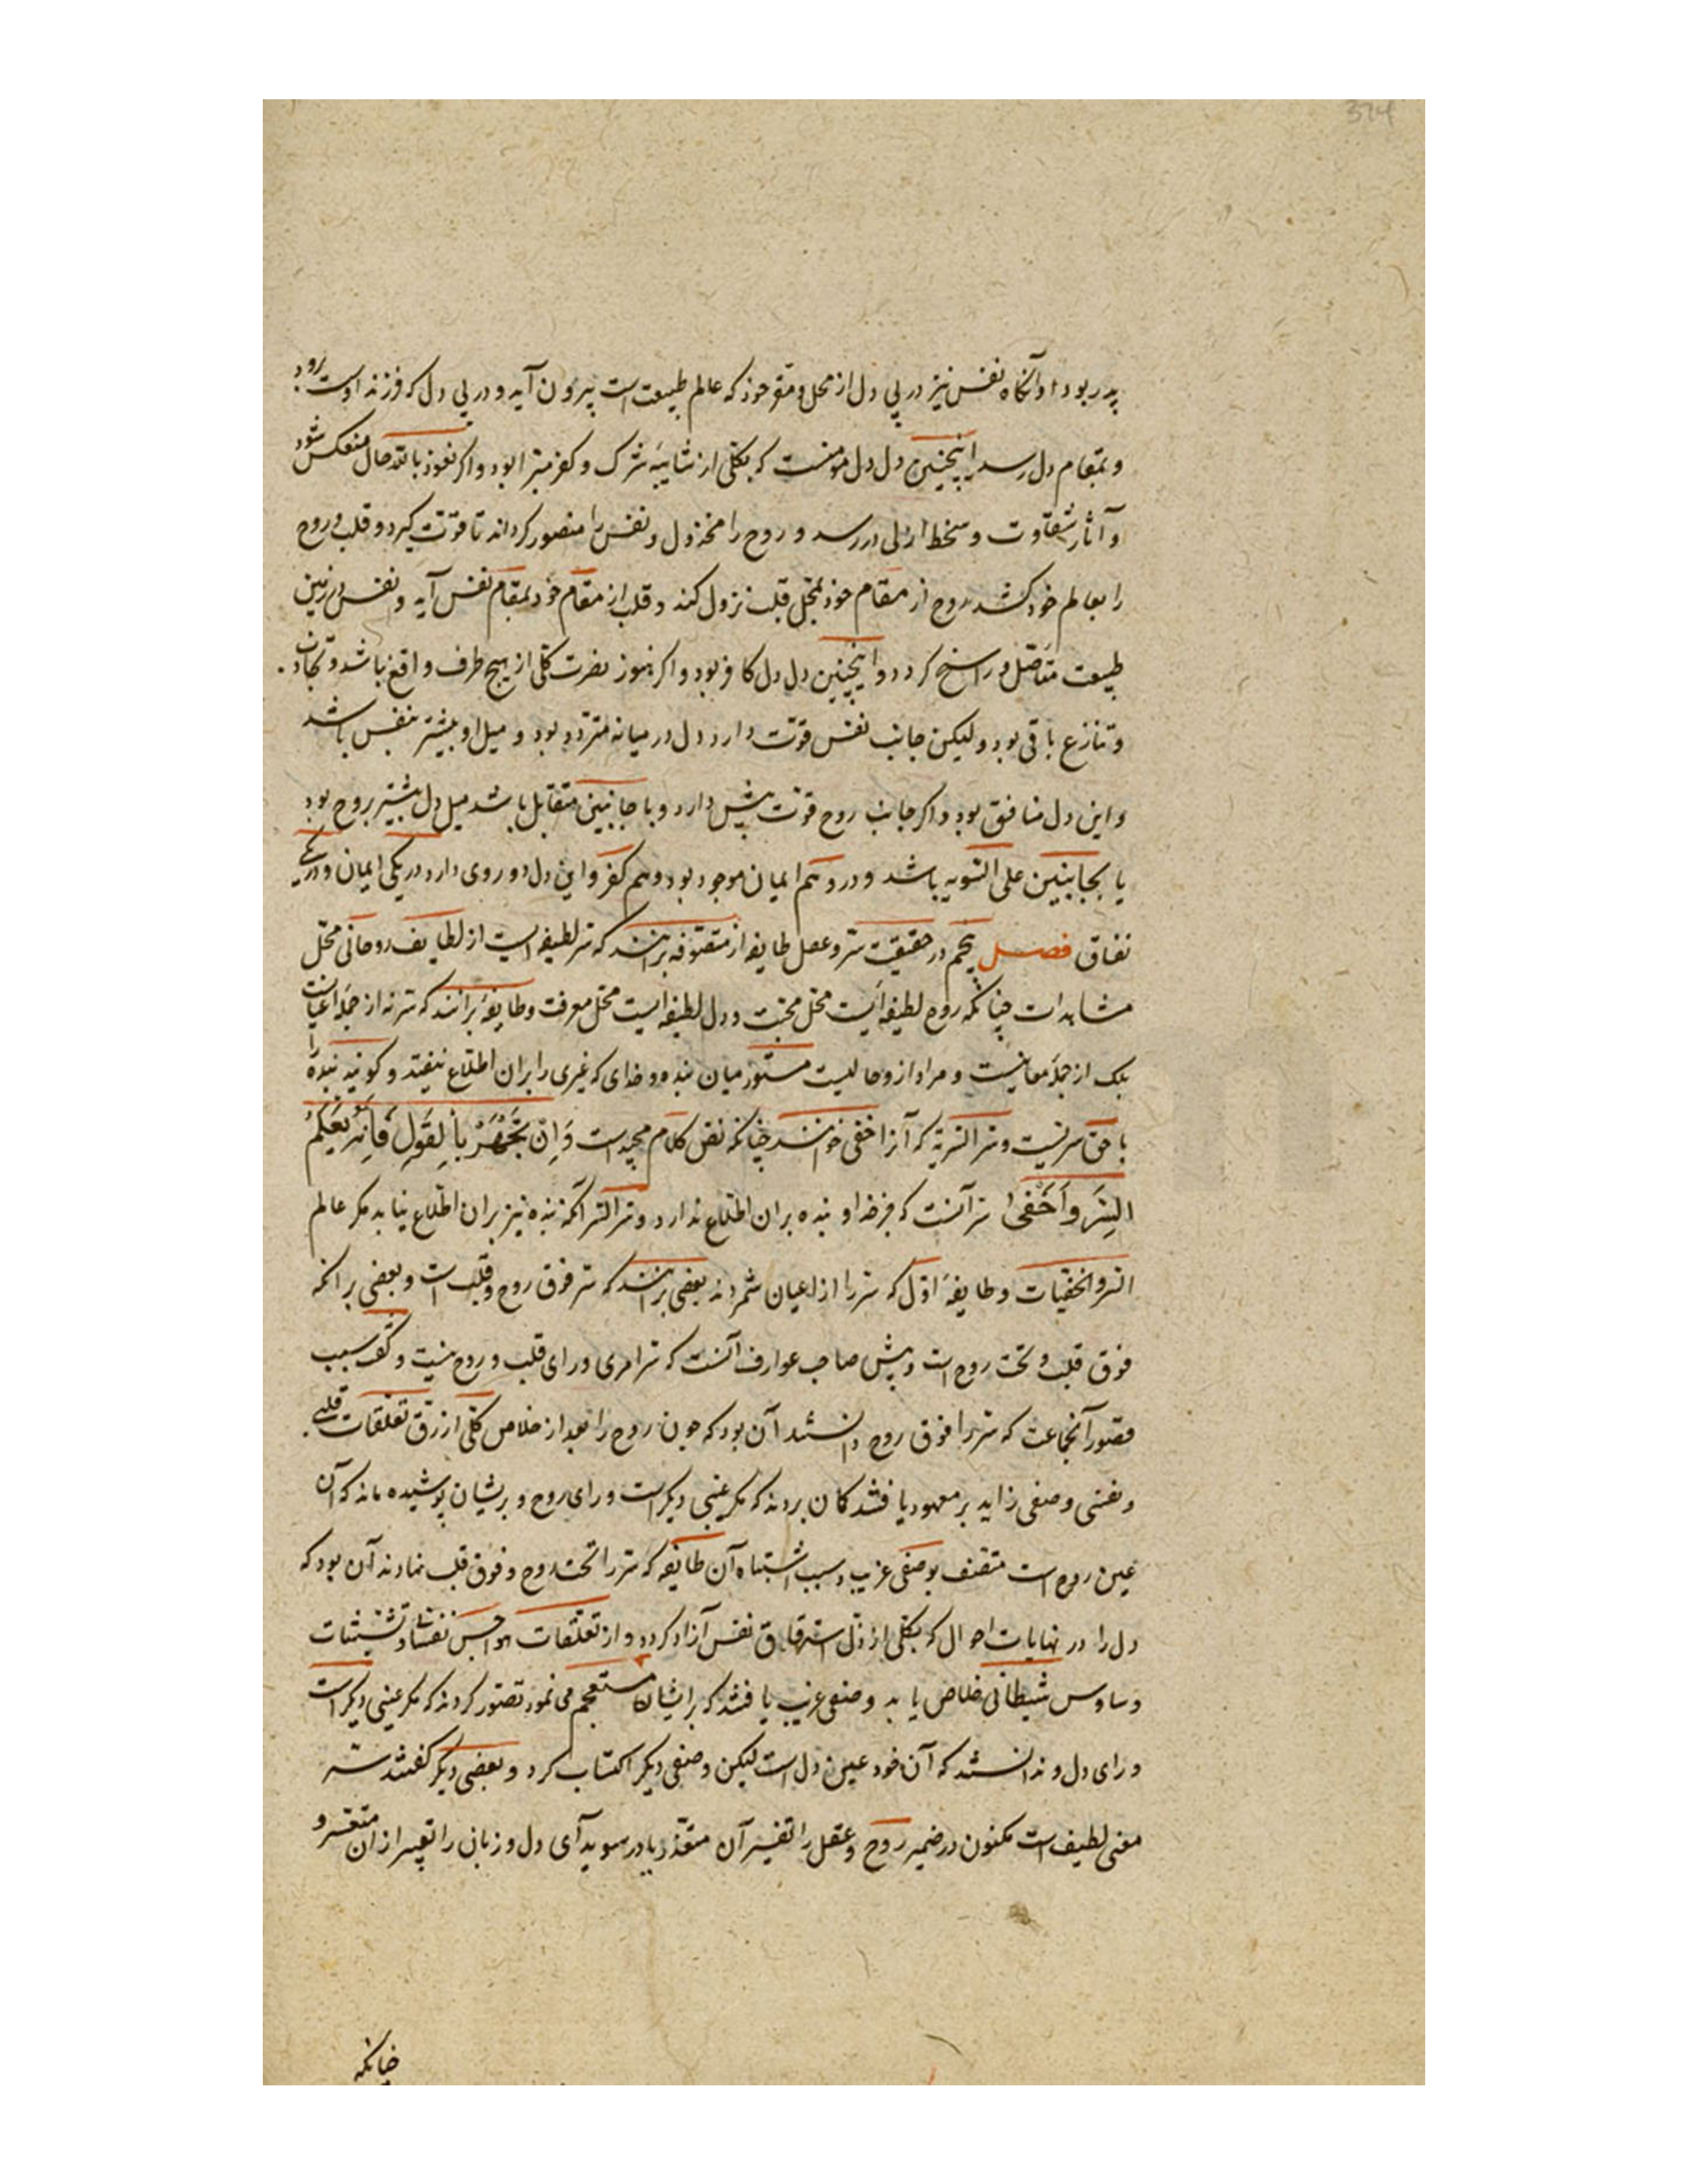 374
پدر بود و آنگاه نفس نیز در پی دل از محل و مقر خود که عالم طبیعت است بیرون آید و در پی دل که فرزند اوست رود
و بمقام دل رسد اینچنین دل دل مؤمنست که بکلی از شایبهٔ شرک و کفر مبرا بود و اگر نعوذ بالله حال منعکس شود
و آثار شقاوت و سخط ازلی در رسد و روح را مخذول و نفس را منصور کرداند تا قوّت کیرد و قلب و روح
را بعالم خود کشد روح از مقام خود بمحل قلب نزول کند و قلب از مقام خود بمقام نفس آید و نفس در زمین
طبیعت متأصل و راسخ کردد و اینچنین دل دل کافر بود و اکر هنوز نصرت کلی از هیچ طرف واقع نباشد و تجاذب
و تنازع باقی بود ولیکن جانب نفس قوّت دارد دل در میانه متردد بود و میل او بیشتر بنفس باشد
و این دل منافق بود و اکر جانب روح قوّت بیش دارد و یا جانبین متقابل باشد میل دل بیشتر بروح بود
یا بجانبین علی السّویه باشد و درو هم ایمان موجود بود و هم کفر و این دل دو روی دارد در یکی ایمان و در یکی
نفاق فصل پنجم در حقیقت سرّ و عقل طایفهٔ از متصوّفه برانند که سرّ لطیفه ایست از لطایف روحانی محلّ
مشاهدات چنانکه روح لطیفه ایست محلّ محبّت و دل لطیفه ایست محل معرفت و طایفهٔ برانند که سرّ نه از جملهٔ اعیانست
بلک از جملهٔ معانیست و مراد ازو حالیست مستور میان بنده و خدای که غیری را بران اطّلاع نیفتد و کویند بنده را
با حق سریست و سرّ السّریست که آنرا اخفی خوانند چنانکه نصّ کلام مجید است وَاِنْ تَجْهَرْ بِالْقَولِ فَاِنَّهُ یَعْلَمُ
السِّرَّ وَاَخْفی سرّ آنست که جز خدا و بنده بران اطّلاع ندارد و سرّ السّر آنکه بنده نیز بران اطّلاع نیابد مکر عالم
السّر و الخفیّات و طایفهٔ اوّل که سرّ را از اعیان شمردند بعضی برانند که سرّ فوق روح و قلب است و بعضی برانکه
فوق قلب و تحت روح است و پیش صاحب عوارف آنست که سرّ امری ورای قلب و روح نیست و کفت سبب
تصوّر آنجماعت که سرّ را فوق روح دانستند آن بود که چون روح را بعد از خلاص کلّی از رقّ تعلّقات قلبی
و نفسی وصفی زاید بر معهود یافتند کمان بردند که مکر عینی دیکر است ورای روح و بریشان پوشیده ماند که آن
عین روح است متّصف بوصفی غریب و سبب اشتباه آن طایفه که سرّ را تحت روح و فوق قلب نهادند آن بود که
دل را در نهایات احوال که بکلّی از ذلّ استرقاق نفس آزاد کردد و از تعلّقات هواجس نفسانی و تشبّثات
وساوس شیطانی خلاص یابد وصفی غریب یافتند که برایشان مستعجم می نمود تصوّر کردند که مکر عینی دیکر است
ورای دل و ندانستند که آن خود عین دل است لیکن وصفی دیکر اکتساب کرد و بعضی دیکر کفتند سرّ
معنی لطیف است مکنون در ضمیر روح و عقل را تفسیر آن متعذّر یا در سویدآی دل و زبان را تعبیر از آن متعسّر و
چنانکه